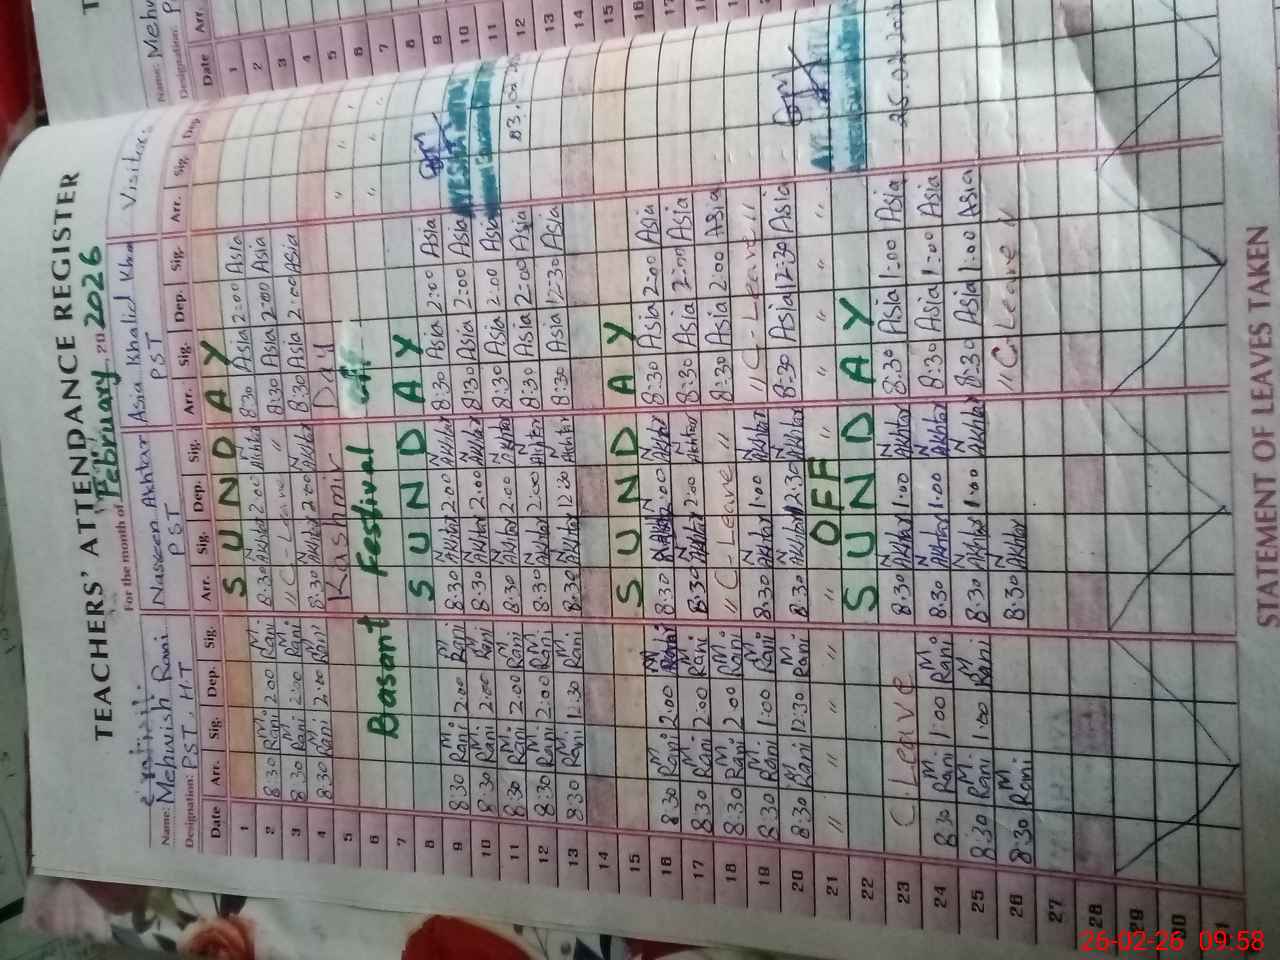 TEACHERS' ATTENDANCE REGISTER
For the month of February 2026
Name: Mehwish Rani Naseem Akhtar Asia Khalid Khan Visitor
Designation: PST, H.T PST PST
Date Arr. Sig. Dep. Sig. Arr. Sig. Dep. Sig. Arr. Sig. Dep. Sig. Arr. Sig. Dep
1 SUNDAY
2 8:30 M. Rani 2:00 M. Rani 8:30 N Akhtar 2:00 N Akhtar 8:30 Asia 2:00 Asia
3 8:30 M. Rani 2:00 M. Rani " C-Leave " 8:30 Asia 2:00 Asia
4 8:30 M. Rani 2:00 M. Rani 8:30 N Akhtar 2:00 N Akhtar 8:30 Asia 2:00 Asia
5 Kashmir Day " "
6 Basant Festival off " "
7
8 SUNDAY
9 8:30 M. Rani 2:00 M. Rani 8:30 N Akhtar 2:00 N Akhtar 8:30 Asia 2:00 Asia
10 8:30 M. Rani 2:00 M. Rani 8:30 N Akhtar 2:00 N Akhtar 8:30 Asia 2:00 Asia
11 8:30 M. Rani 2:00 M. Rani 8:30 N Akhtar 2:00 N Akhtar 8:30 Asia 2:00 Asia
12 8:30 M. Rani 2:00 M. Rani 8:30 N Akhtar 2:00 N Akhtar 8:30 Asia 2:00 Asia
13 8:30 M. Rani 12:30 M. Rani 8:30 N Akhtar 12:30 N Akhtar 8:30 Asia 12:30 Asia
14
15 SUNDAY
16 8:30 M. Rani 2:00 M. Rani 8:30 N Akhtar 2:00 N Akhtar 8:30 Asia 2:00 Asia
17 8:30 M. Rani 2:00 M. Rani 8:30 N Akhtar 2:00 N Akhtar 8:30 Asia 2:00 Asia
18 8:30 M. Rani 2:00 M. Rani " C-Leave " 8:30 Asia 2:00 Asia
19 8:30 M. Rani 1:00 M. Rani 8:30 N Akhtar 1:00 N Akhtar " C-Leave "
20 8:30 M. Rani 12:30 M. Rani 8:30 N Akhtar 12:30 N Akhtar 8:30 Asia 12:30 Asia
21 " " " " " OFF " " " " "
22 SUNDAY
23 C. Leave 8:30 N Akhtar 1:00 N Akhtar 8:30 Asia 1:00 Asia
24 8:30 M. Rani 1:00 M. Rani 8:30 N Akhtar 1:00 N Akhtar 8:30 Asia 1:00 Asia
25 8:30 M. Rani 1:00 M. Rani 8:30 N Akhtar 1:00 N Akhtar 8:30 Asia 1:00 Asia
26 8:30 M Rani 8:30 N Akhtar " C Leave "
27
28
29
30
STATEMENT OF LEAVES TAKEN
Name: Mehw
Designation:
Date Arr.
1
2
3
4
5
6
7
8
9
10
11
12
13
14
15
16
17
18
19
20
26-02-26 09:58